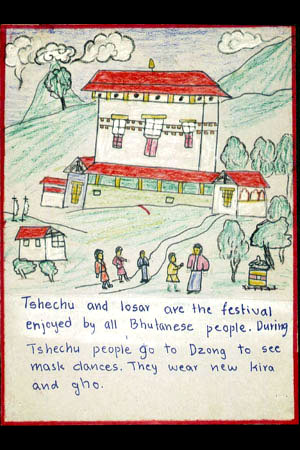 Tshechu and losar are the festival
enjoyed by all Bhutanese people. During
Tshechu people go to Dzong to see
mask dances. They wear new kira
and gho.